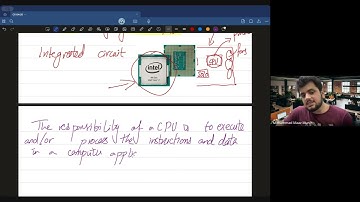 Integrated circuit
intel
CPU
The responsibility of a CPU is to execute
and/or process the instructions and data
in a computer applic